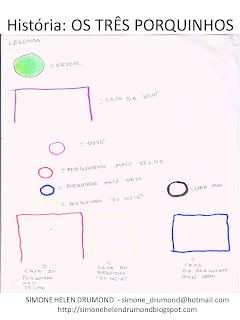 História: OS TRÊS PORQUINHOS
LEGENDA:
= ÁRVORE
= CASA DA VOVÓ
= VOVÓ
= PORQUINHO MAIS VELHO
= PORQUINHO MAIS NOVO
= LOBO MAU
= PORQUINHO "DO MEIO"
= CASA DO PORQUINHO MAIS VELHO
= CASA DO PORQUINHO "DO MEIO"
= CASA DO PORQUINHO MAIS NOVO
SIMONE HELEN DRUMOND - simone_drumond@hotmail.com
http://simonehelendrumond.blogspot.com